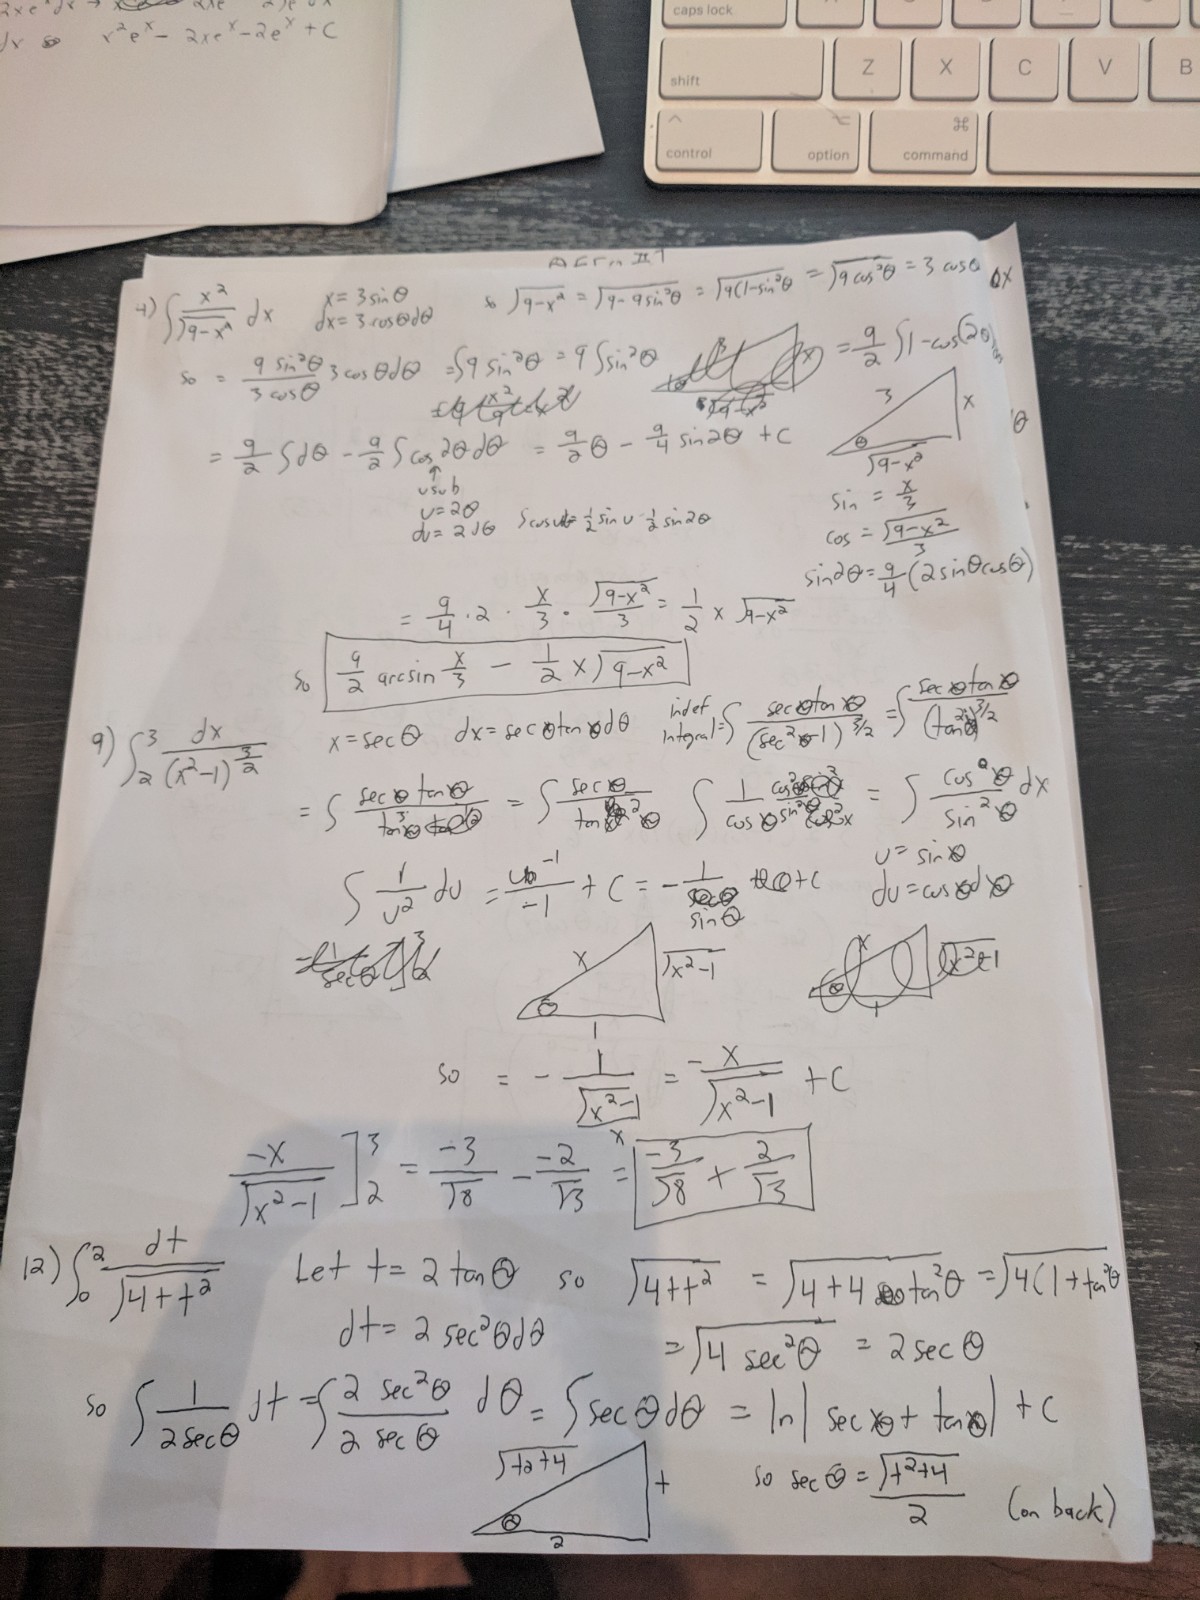 x²eˣ - 2xeˣ - 2eˣ + C
caps lock
shift Z X C V B
control option ⌘ command
4) ∫ x²/√(9-x²) dx x = 3 sinθ so √(9-x²) = √(9-9sin²θ) = √(9(1-sin²θ) = √(9cos²θ) = 3 cosθ
dx = 3 cosθdθ
so = 9 sin²θ/3 cosθ 3 cosθdθ = ∫9 sin²θ = 9∫sin²θ = 9/2 ∫1-cos(2θ)
= 9/2 ∫dθ - 9/2 ∫cos 2θdθ = 9/2 θ - 9/4 sin2θ + C
3 x θ √(9-x²)
usub
u = 2θ
du = 2dθ ∫cosu = 1/2 sin u 1/2 sin2θ
sin = x/3
cos = √(9-x²)/3
sin2θ = 9/4 (2sinθcosθ)
= 9/4 · 2 · x/3 · √(9-x²)/3 = 1/2 x √(9-x²)
so 9/2 arcsin x/3 - 1/2 x√(9-x²)
9) ∫₂³ dx/(x²-1)^(3/2) x = secθ dx = secθtanθdθ indef integral = ∫ secθtanθ/(sec²θ-1)^(3/2) = ∫ secθtanθ/(tan²θ)^(3/2)
= ∫ secθ tanθ/tan³θ = ∫ secθ/tan²θ ∫ 1/cosθ cos²θ/sin²θ = ∫ cosθ/sin²θ dx
u = sinθ
du = cosθdθ
∫ 1/u² du = u⁻¹/-1 + C = -1/sinθ + C
x √(x²-1) θ 1
x √(x²-1) θ 1
so = - 1/(√(x²-1)/x) = -x/√(x²-1) + C
-x/√(x²-1)]₂³ = -3/√8 - -2/√3 = -3/√8 + 2/√3
12) ∫₀² dt/√(4+t²) Let t = 2 tanθ so √(4+t²) = √(4+4tan²θ) = √(4(1+tan²θ)
dt = 2 sec²θdθ = √(4 sec²θ) = 2 secθ
so ∫ 1/2secθ dt = ∫ 2 sec²θ/2 secθ dθ = ∫secθdθ = ln|secθ + tanθ| + C
√(t²+4) t θ 2
so secθ = √(t²+4)/2 (on back)